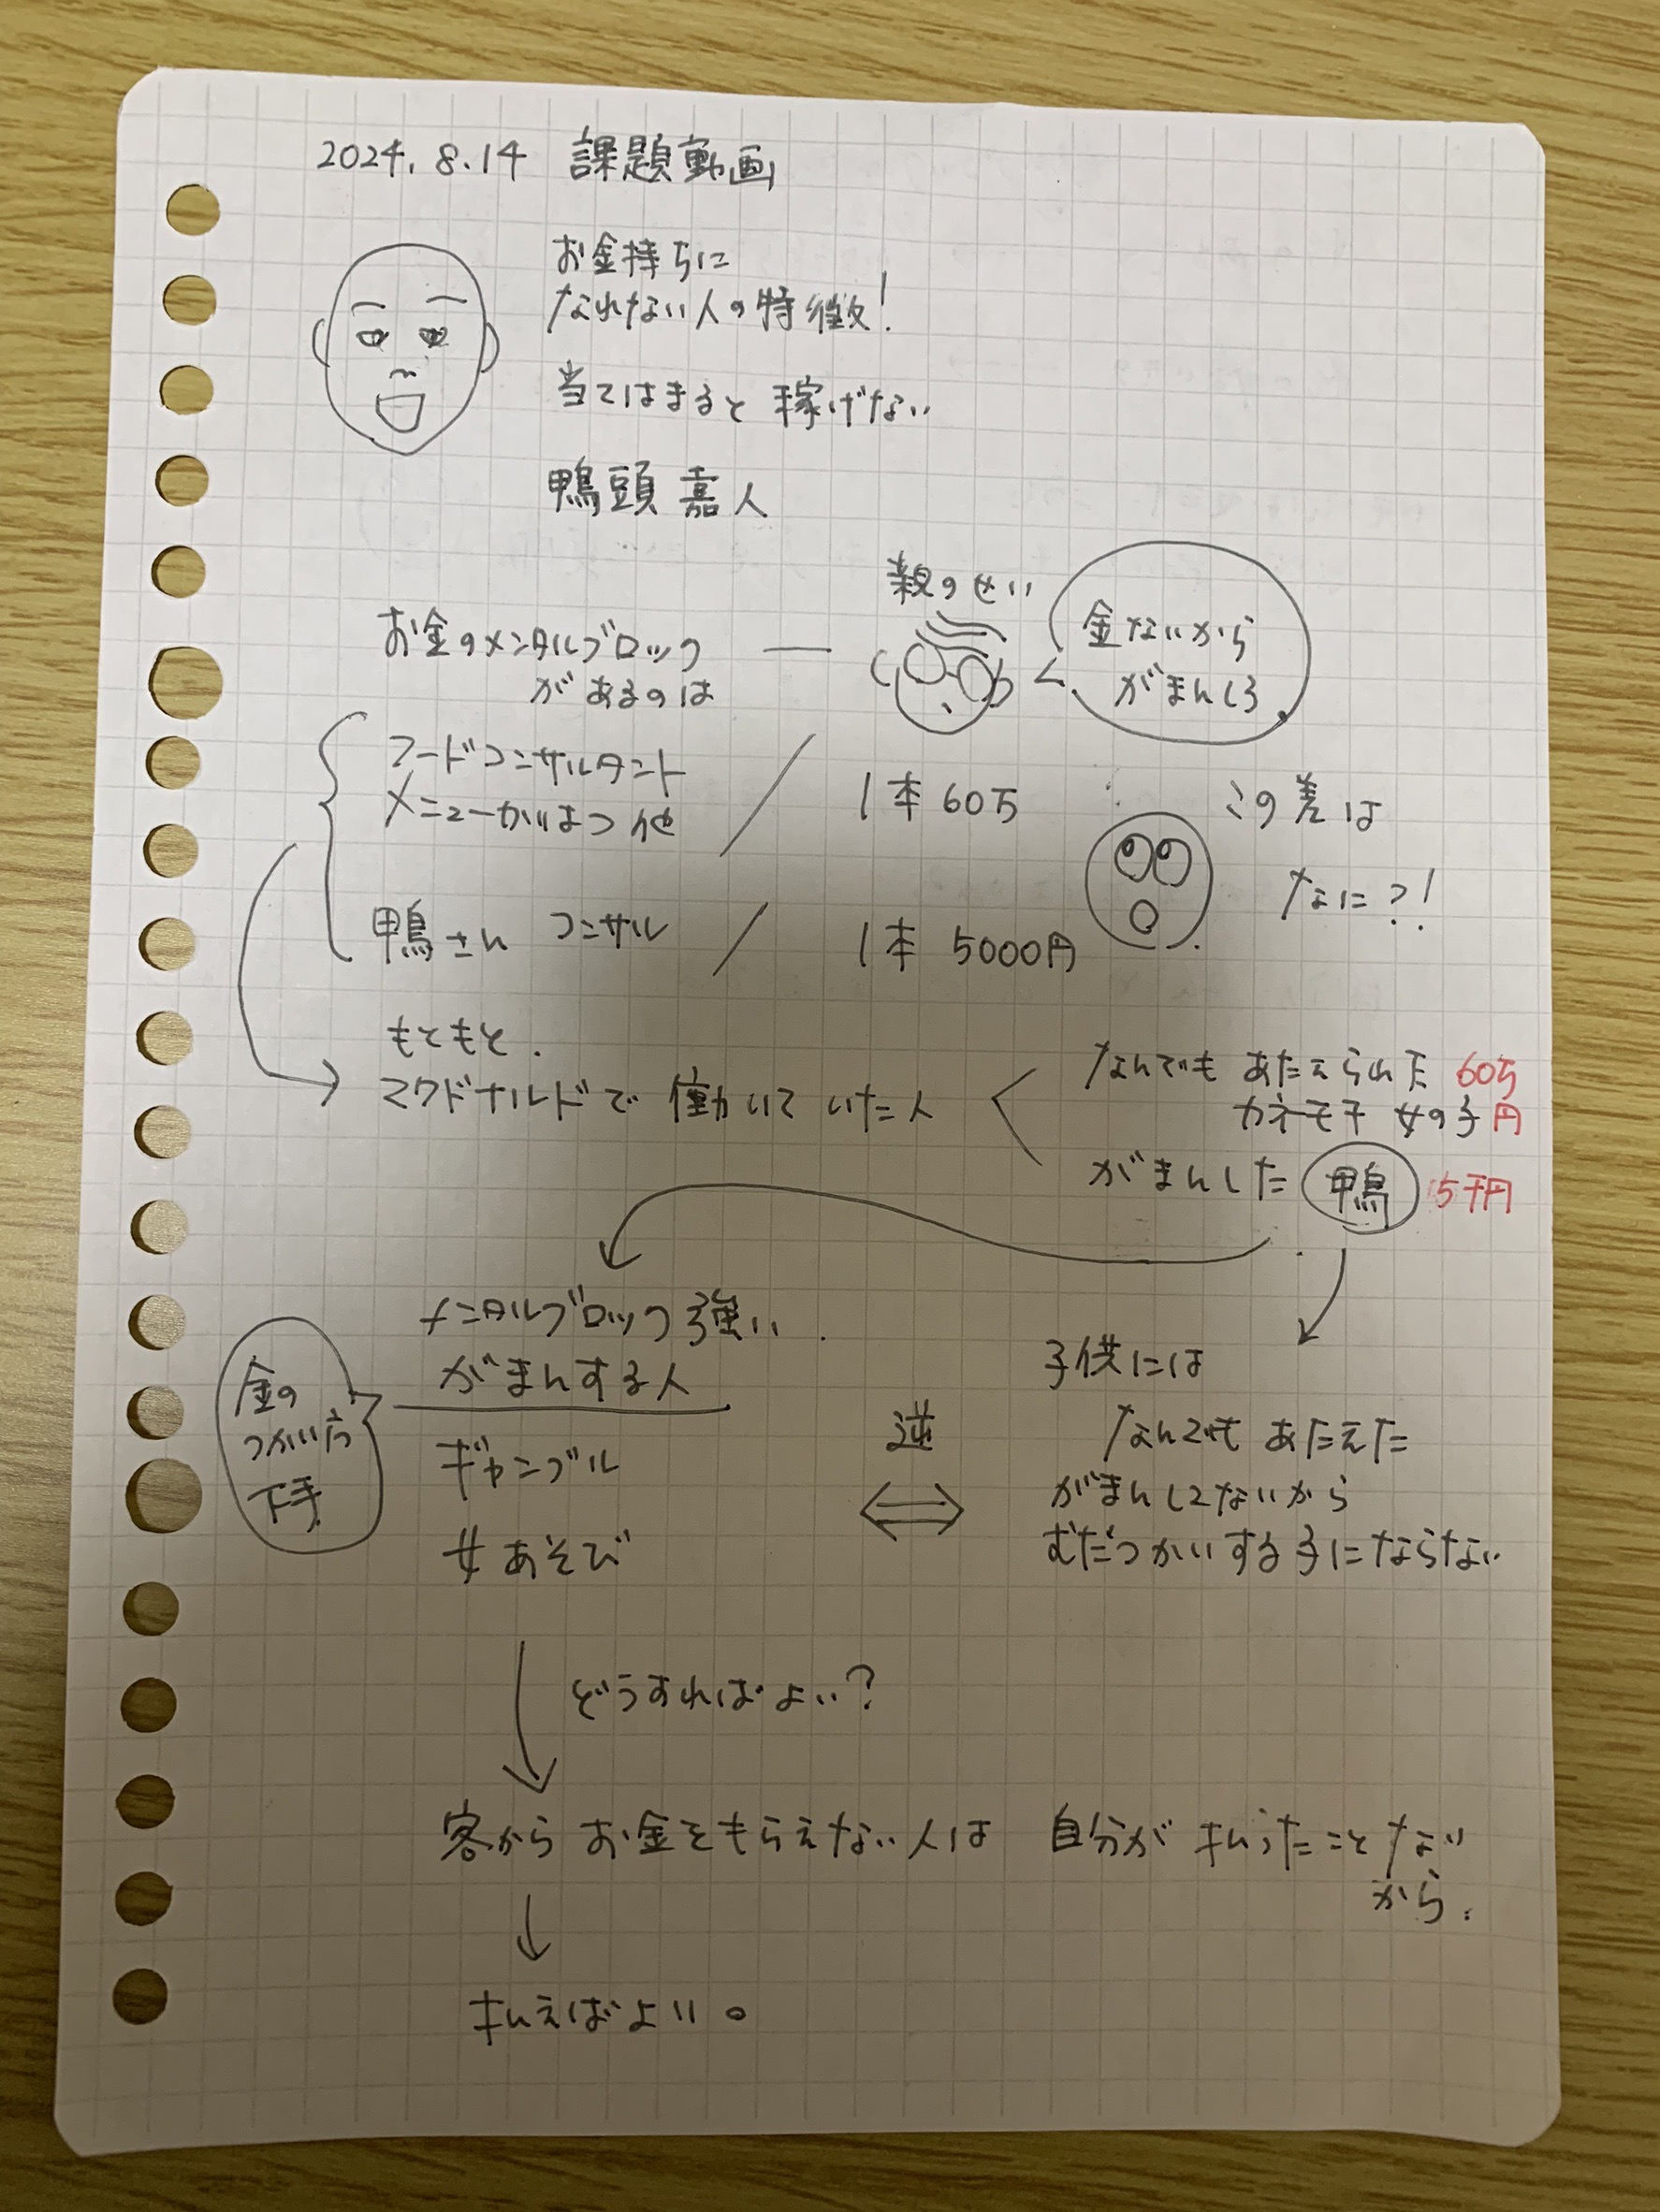 2024.8.14 課題動画
お金持ちに
なれない人の特徴!
当てはまると稼げない
鴨頭嘉人
親のせい
金ないから
がまんしろ
お金のメンタルブロック
があるのは
フードコンサルタント
メニューかいはつ他
1本60万
この差は
なに?!
鴨さん コンサル
1本 5000円
もともと.
マクドナルドで働いていた人
なんでもあたえられた 60万
カネモチ女の子 円
がまんした 鴨 5千円
メンタルブロック強い.
がまんする人
金の
つかい方
下手
ギャンブル
女あそび
逆
子供には
なんでもあたえた
がまんしてないから
むだつかいする子にならない
どうすればよい?
客からお金をもらえない人は 自分が払ったことない
から.
払えばよい。